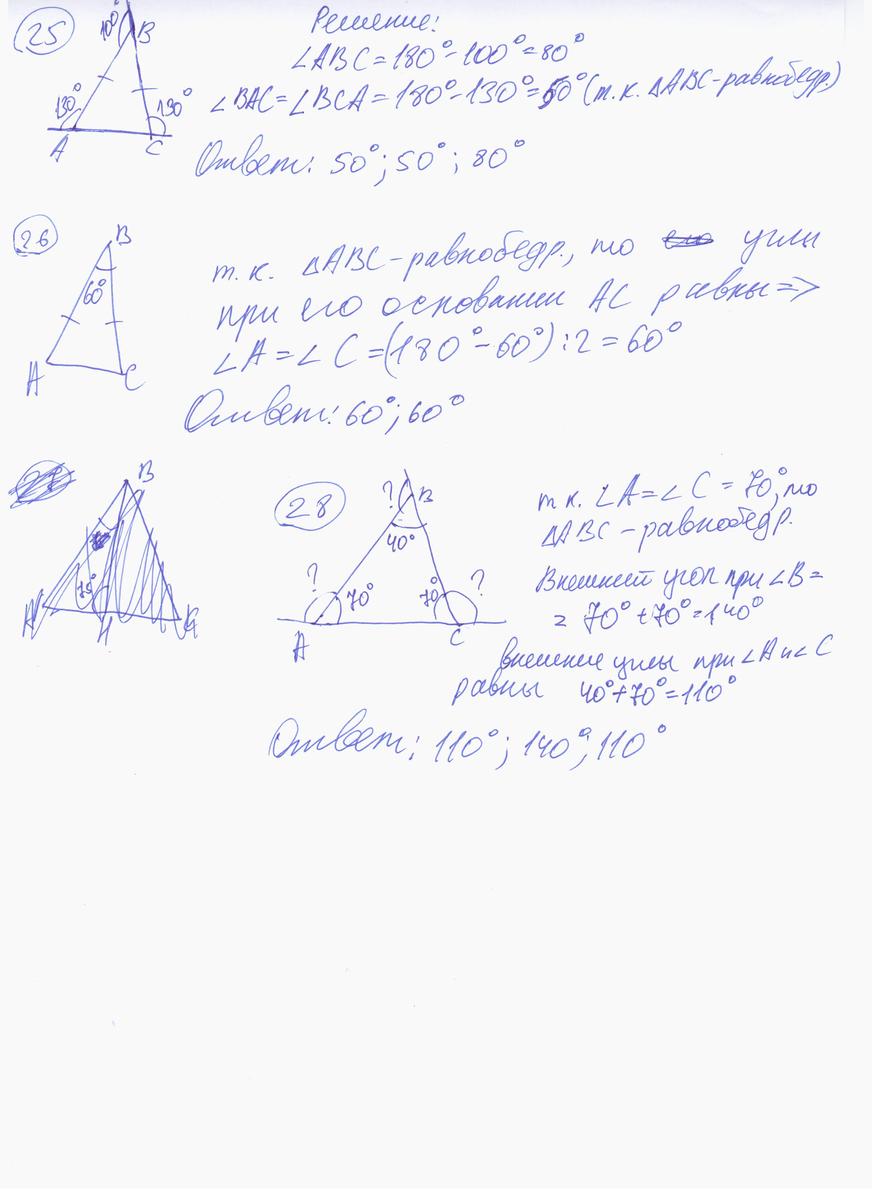 25
100°
B
130°
130°
A
C
Решение:
∠ABC = 180° - 100° = 80°
∠BAC = ∠BCA = 180° - 130° = 50° (т.к. △ABC - равнобедр.)
Ответ: 50°; 50°; 80°
26
B
60°
A
C
т.к. △ABC - равнобедр., то углы
при его основании AC равны =>
∠A = ∠C = (180° - 60°) : 2 = 60°
Ответ: 60°; 60°
B
75°
A
H
28
?
B
40°
?
70°
70°
?
A
C
т.к. ∠A = ∠C = 70°, то
△ABC - равнобедр.
Внешний угол при ∠B =
= 70° + 70° = 140°
внешние углы при ∠A и ∠C
равны 40° + 70° = 110°
Ответ: 110°; 140°; 110°